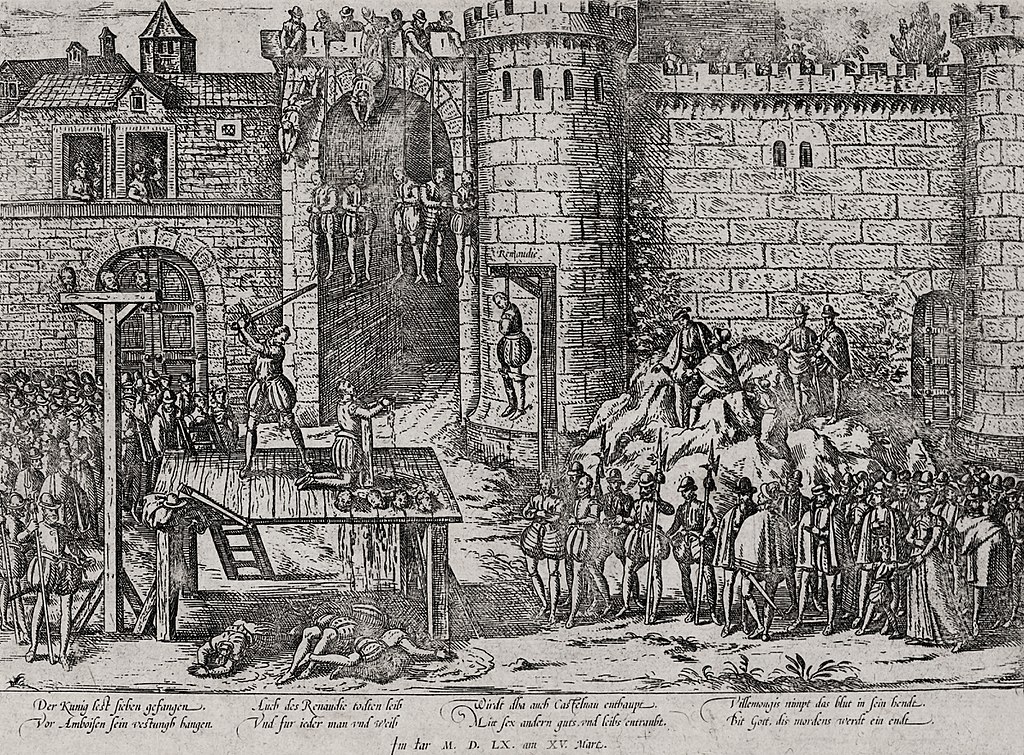 Renaudie
Der Kunig lest sieben gefangen
Vor Amboisen sein vestungh hangen.
Auch des Renaudie todten leib
Vnd fur ieder man vnd weib
Wirdt alha auch Castelnau enthaupt
Mitt sex andern guts vnd leibs entraubt.
Villemongis nimpt das blut in sein hendt.
Bit Gott, dis mordens werdt ein endt
Im Iar M. D. LX. am XV. Martz.